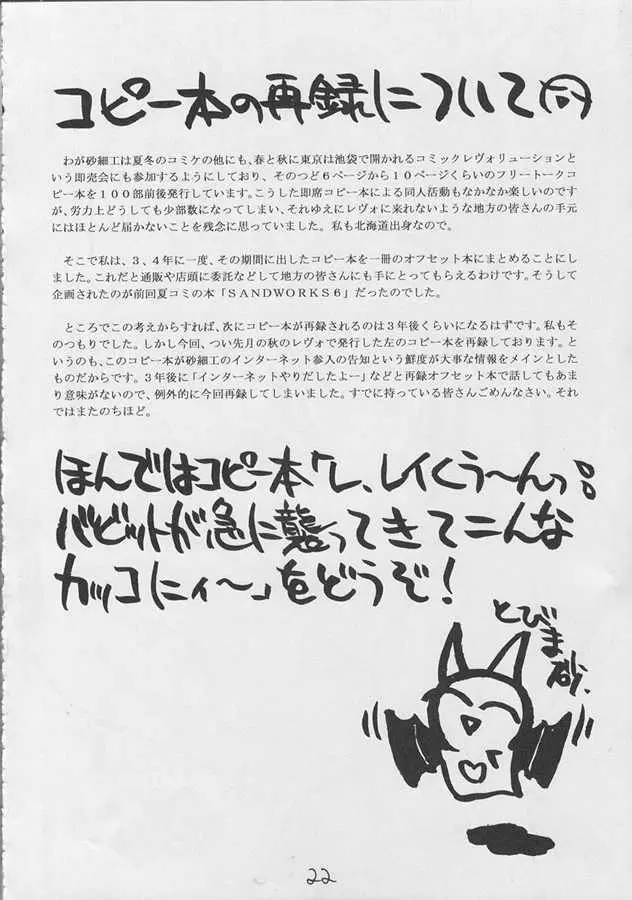 コピー本の再録について
わが砂細工は夏冬のコミケの他にも、春と秋に東京は池袋で開かれるコミックレヴォリューションと
いう即売会にも参加するようにしており、そのつど6ページから10ページくらいのフリートーク
コピー本を100部前後発行しています。こうした即席コピー本による同人活動もなかなか楽しいのです
が、労力上どうしても少部数になってしまい、それゆえにレヴォに来れないような地方の皆さんの手元
にはほとんど届かないことを残念に思っていました。私も北海道出身なので。
そこで私は、3、4年に一度、その期間に出したコピー本を一冊のオフセット本にまとめることにし
ました。これだと通販や店頭に委託などして地方の皆さんにも手にとってもらえるわけです。そうして
企画されたのが前回夏コミの本「SANDWORKS6」だったのでした。
ところでこの考えからすれば、次にコピー本が再録されるのは3年後くらいになるはずです。私もそ
のつもりでした。しかし今回、つい先月の秋のレヴォで発行した左のコピー本を再録しております。と
いうのも、このコピー本が砂細工のインターネット参入の告知という鮮度が大事な情報をメインとした
ものだからです。3年後に「インターネットやりだしたよー」などと再録オフセット本で話してもあま
り意味がないので、例外的に今回再録してしまいました。すでに持っている皆さんごめんなさい。それ
ではまたのちほど。
ほんではコピー本「レ、レイくぅ〜んっ!!
バビットが急に襲ってきてこんな
カッコにィ〜」をどうぞ!
とびま砂、
22